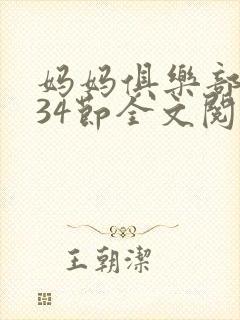 妈妈俱樂部
34節全文閱
王朝潔